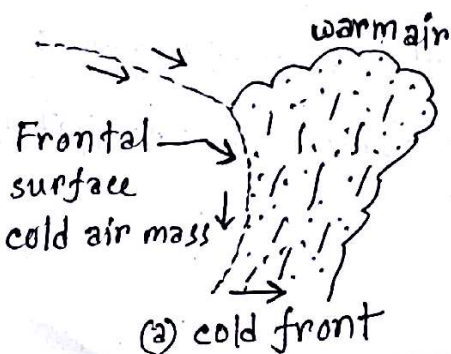 warm air
Frontal
surface
cold air mass
(a) cold front